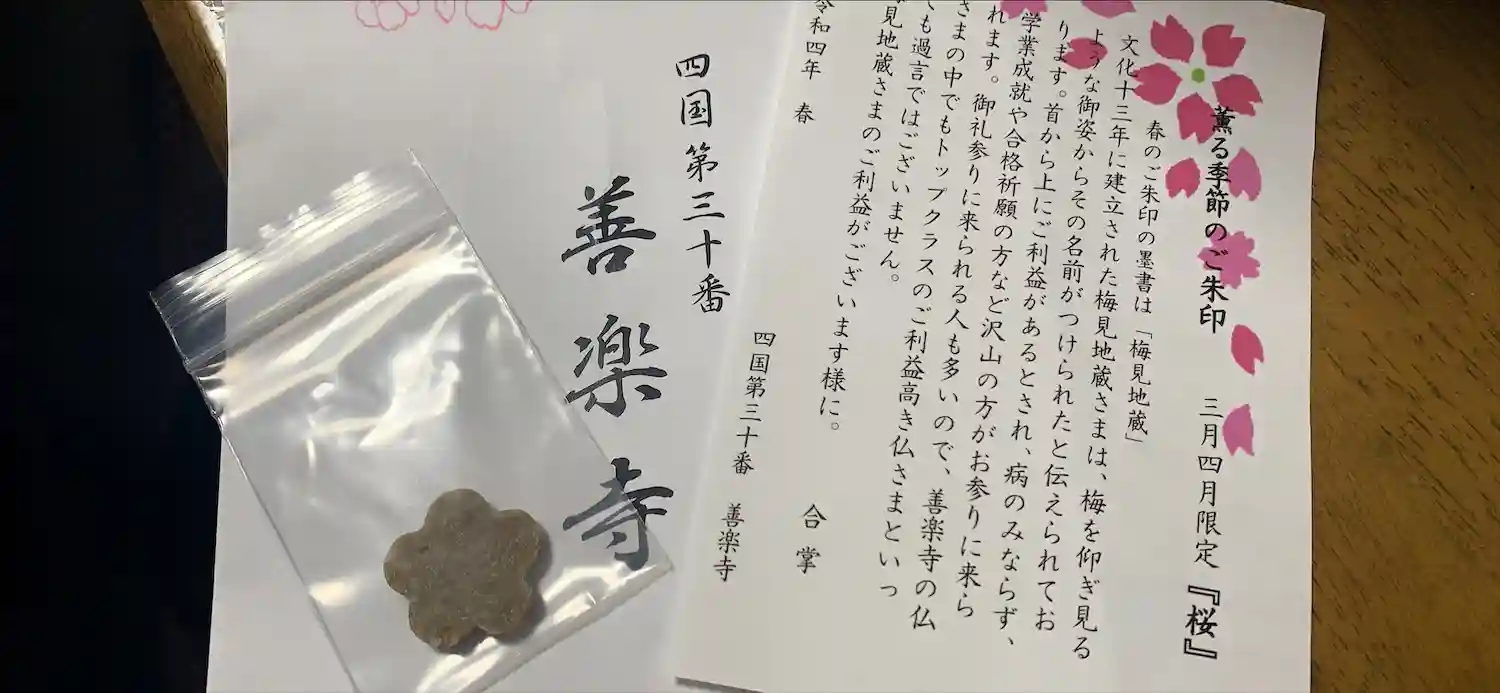 薫る季節のご朱印 三月四月限定『桜』
春のご朱印の墨書は「梅見地蔵」
文化十三年に建立された梅見地蔵さまは、梅を仰ぎ見る
ような御姿からその名前がつけられたと伝えられてお
ります。首から上にご利益があるとされ、病のみならず、
学業成就や合格祈願の方など沢山の方がお参りに来ら
れます。御礼参りに来られる人も多いので、善楽寺の仏
さまの中でもトップクラスのご利益高き仏さまといっ
ても過言ではございません。
見地蔵さまのご利益がございます様に。 合掌
令和四年 春 四国第三十番 善楽寺
四国第三十番
善楽寺